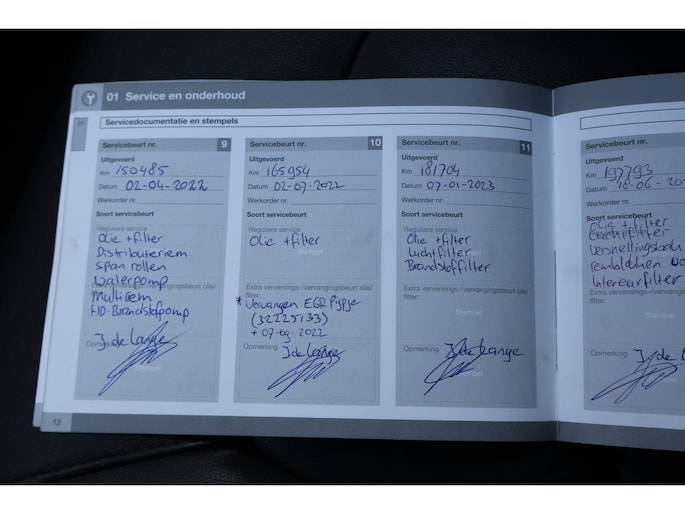 01 Service en onderhoud
01
Servicedocumentatie en stempels
Servicebeurt nr. 9
Uitgevoerd
Km 150485
Datum 02-04-2022
Werkorder nr.
Soort servicebeurt
Reguliere service
Olie +filter
Distributieriem
Span rollen
Waterpomp
Extra verversings-/vervangingsbeurt olie/
filter:
Multirem
HD-Brandstofpomp
Opmerking J de Lange
Stempel
12
Servicebeurt nr. 10
Uitgevoerd
Km 165954
Datum 02-07-2022
Werkorder nr.
Soort servicebeurt
Reguliere service
Olie +filter
Stempel
Extra verversings-/vervangingsbeurt olie/
filter:
* Vervangen EGR Pijpje
(32225133)
+ 07-09-2022
Opmerking J de Lange
Servicebeurt nr. 11
Uitgevoerd
Km 181704
Datum 07-01-2023
Werkorder nr.
Soort servicebeurt
Reguliere service
Olie +filter
Luchtfilter
Brandstoffilter
Stempel
Extra verversings-/vervangingsbeurt olie/
filter:
Stempel
Opmerking J de Lange
Servicebeurt nr.
Uitgevoerd
Km 197793
Datum 18-06-20
Werkorder nr.
Soort servicebeurt
Reguliere service
Olie +filter
Luchtfilter
Versnellingsbak
remblokken
Interieurfilter
Extra verversings-/vervangings
filter:
Stempel
Opmerking J de L